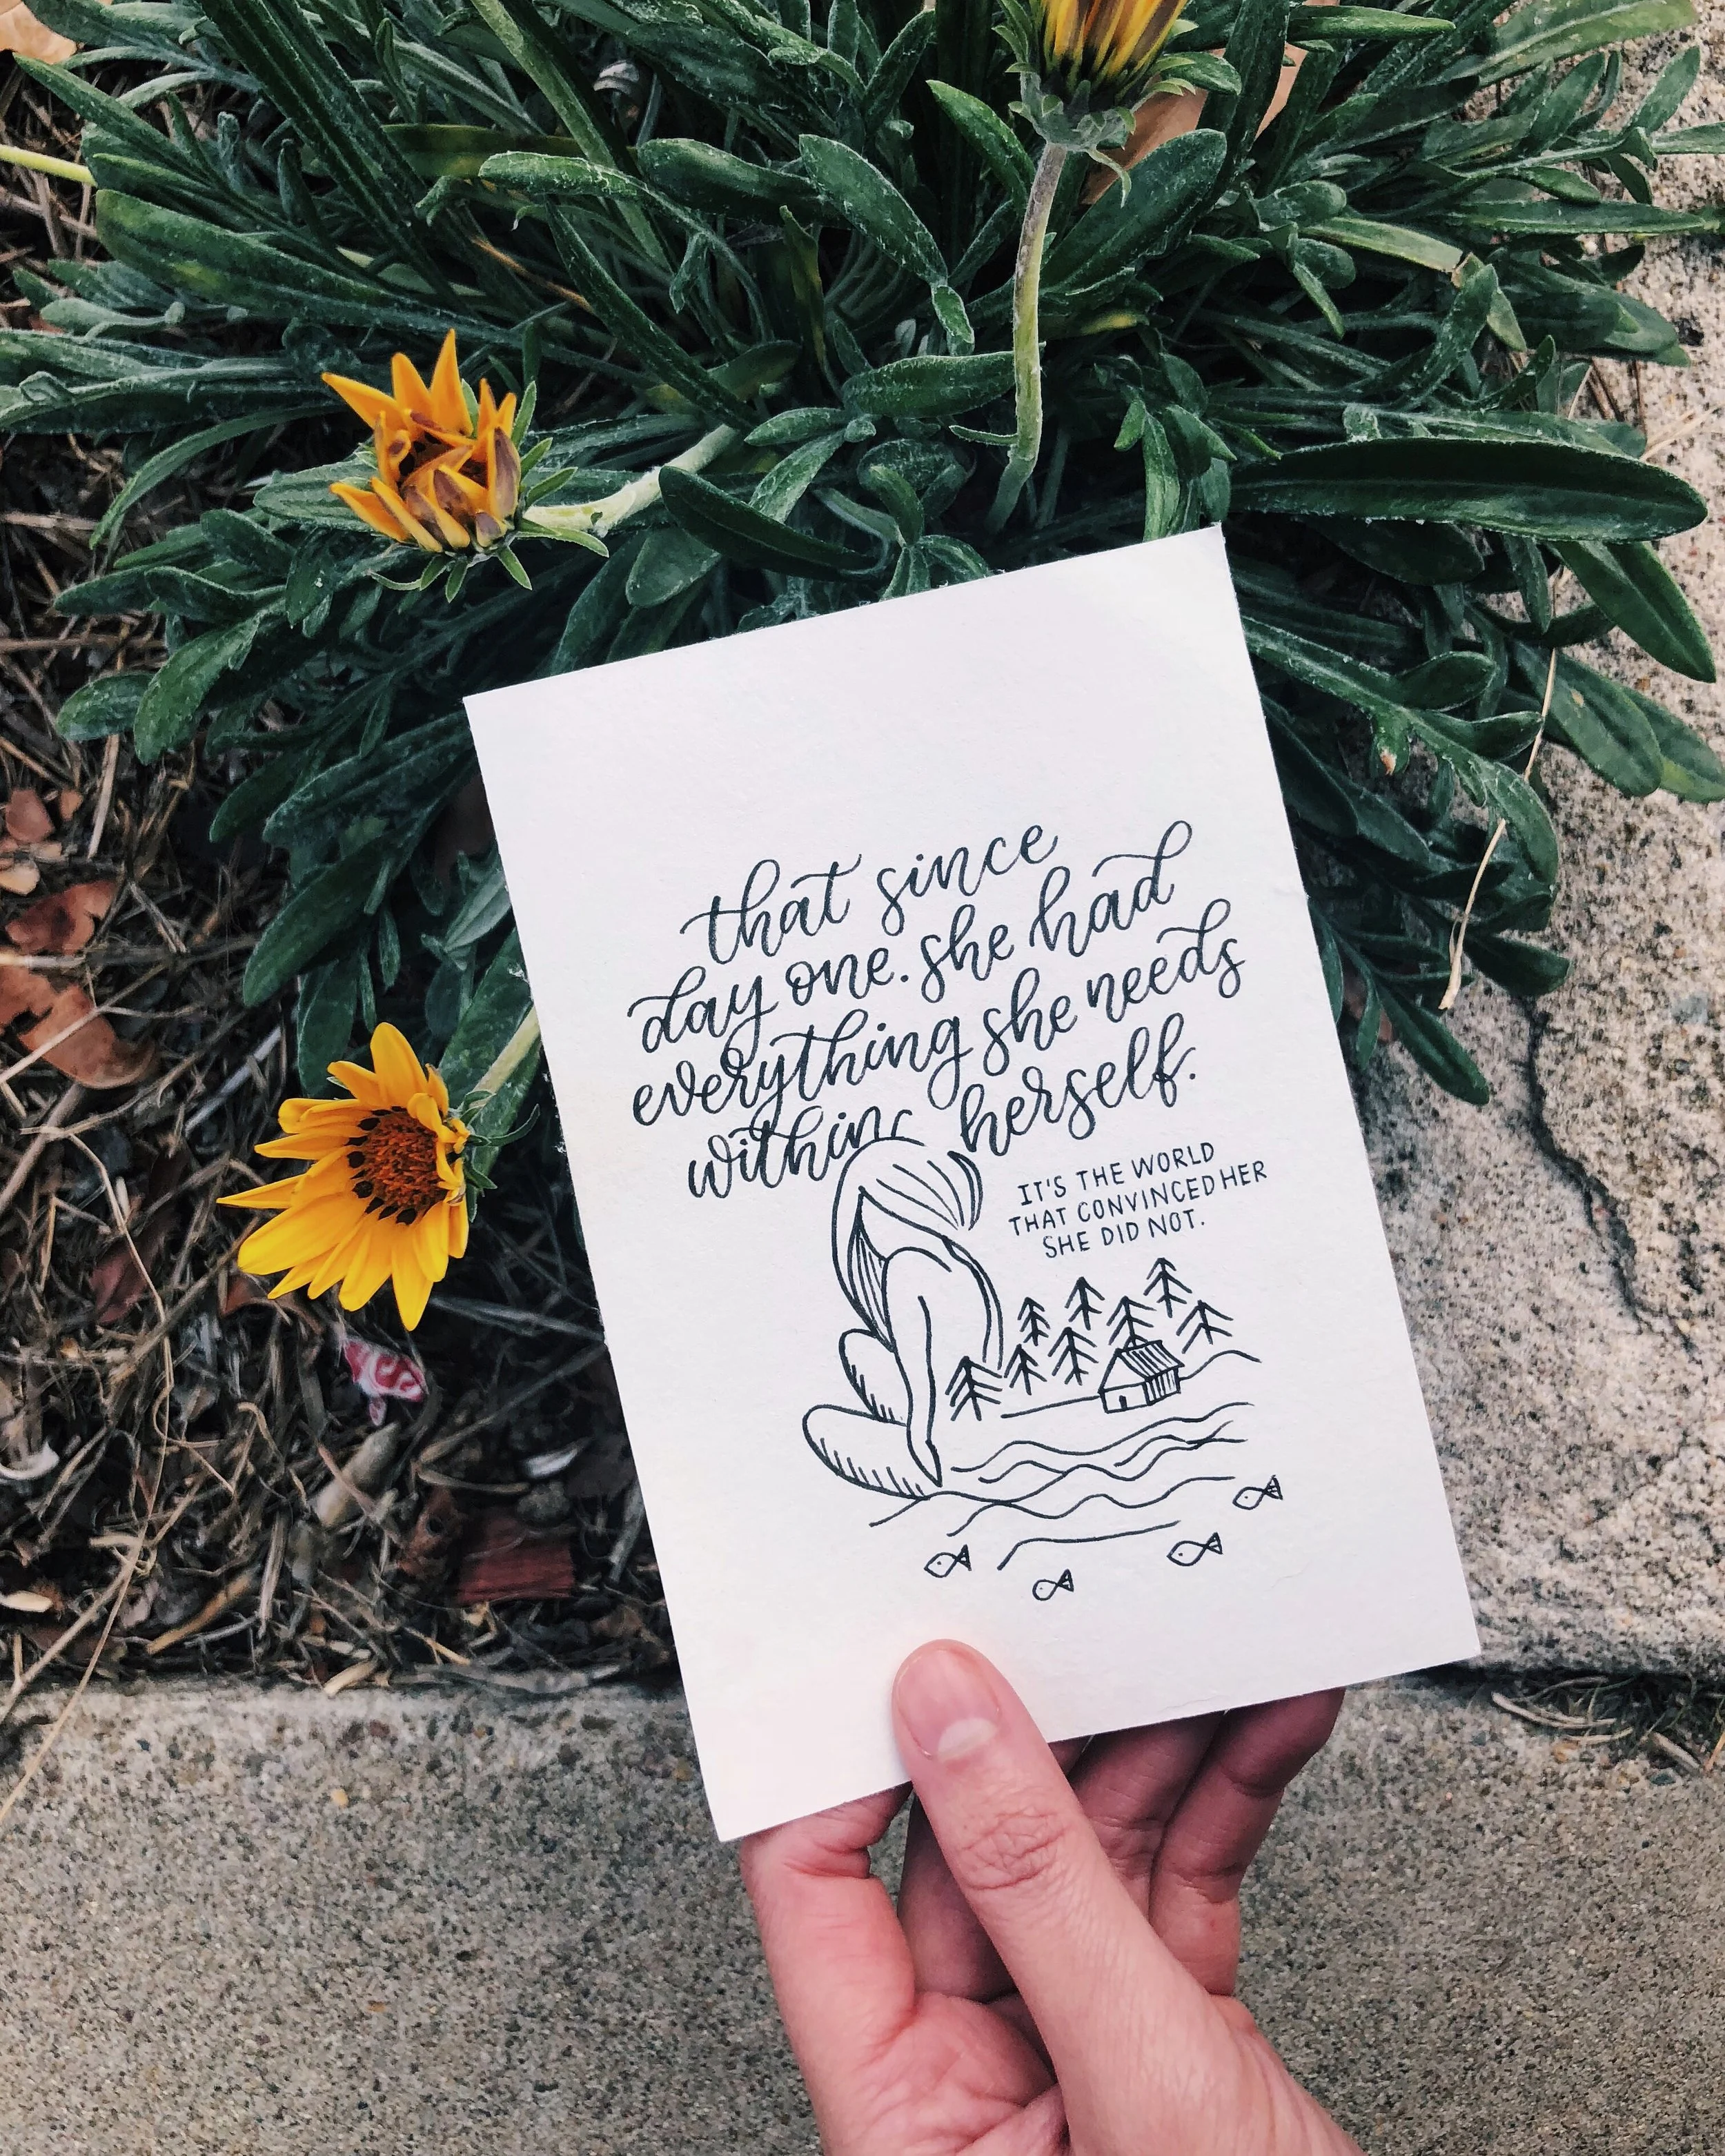 that since
day one. she had
everything she needs
within herself.
IT'S THE WORLD
THAT CONVINCED HER
SHE DID NOT.